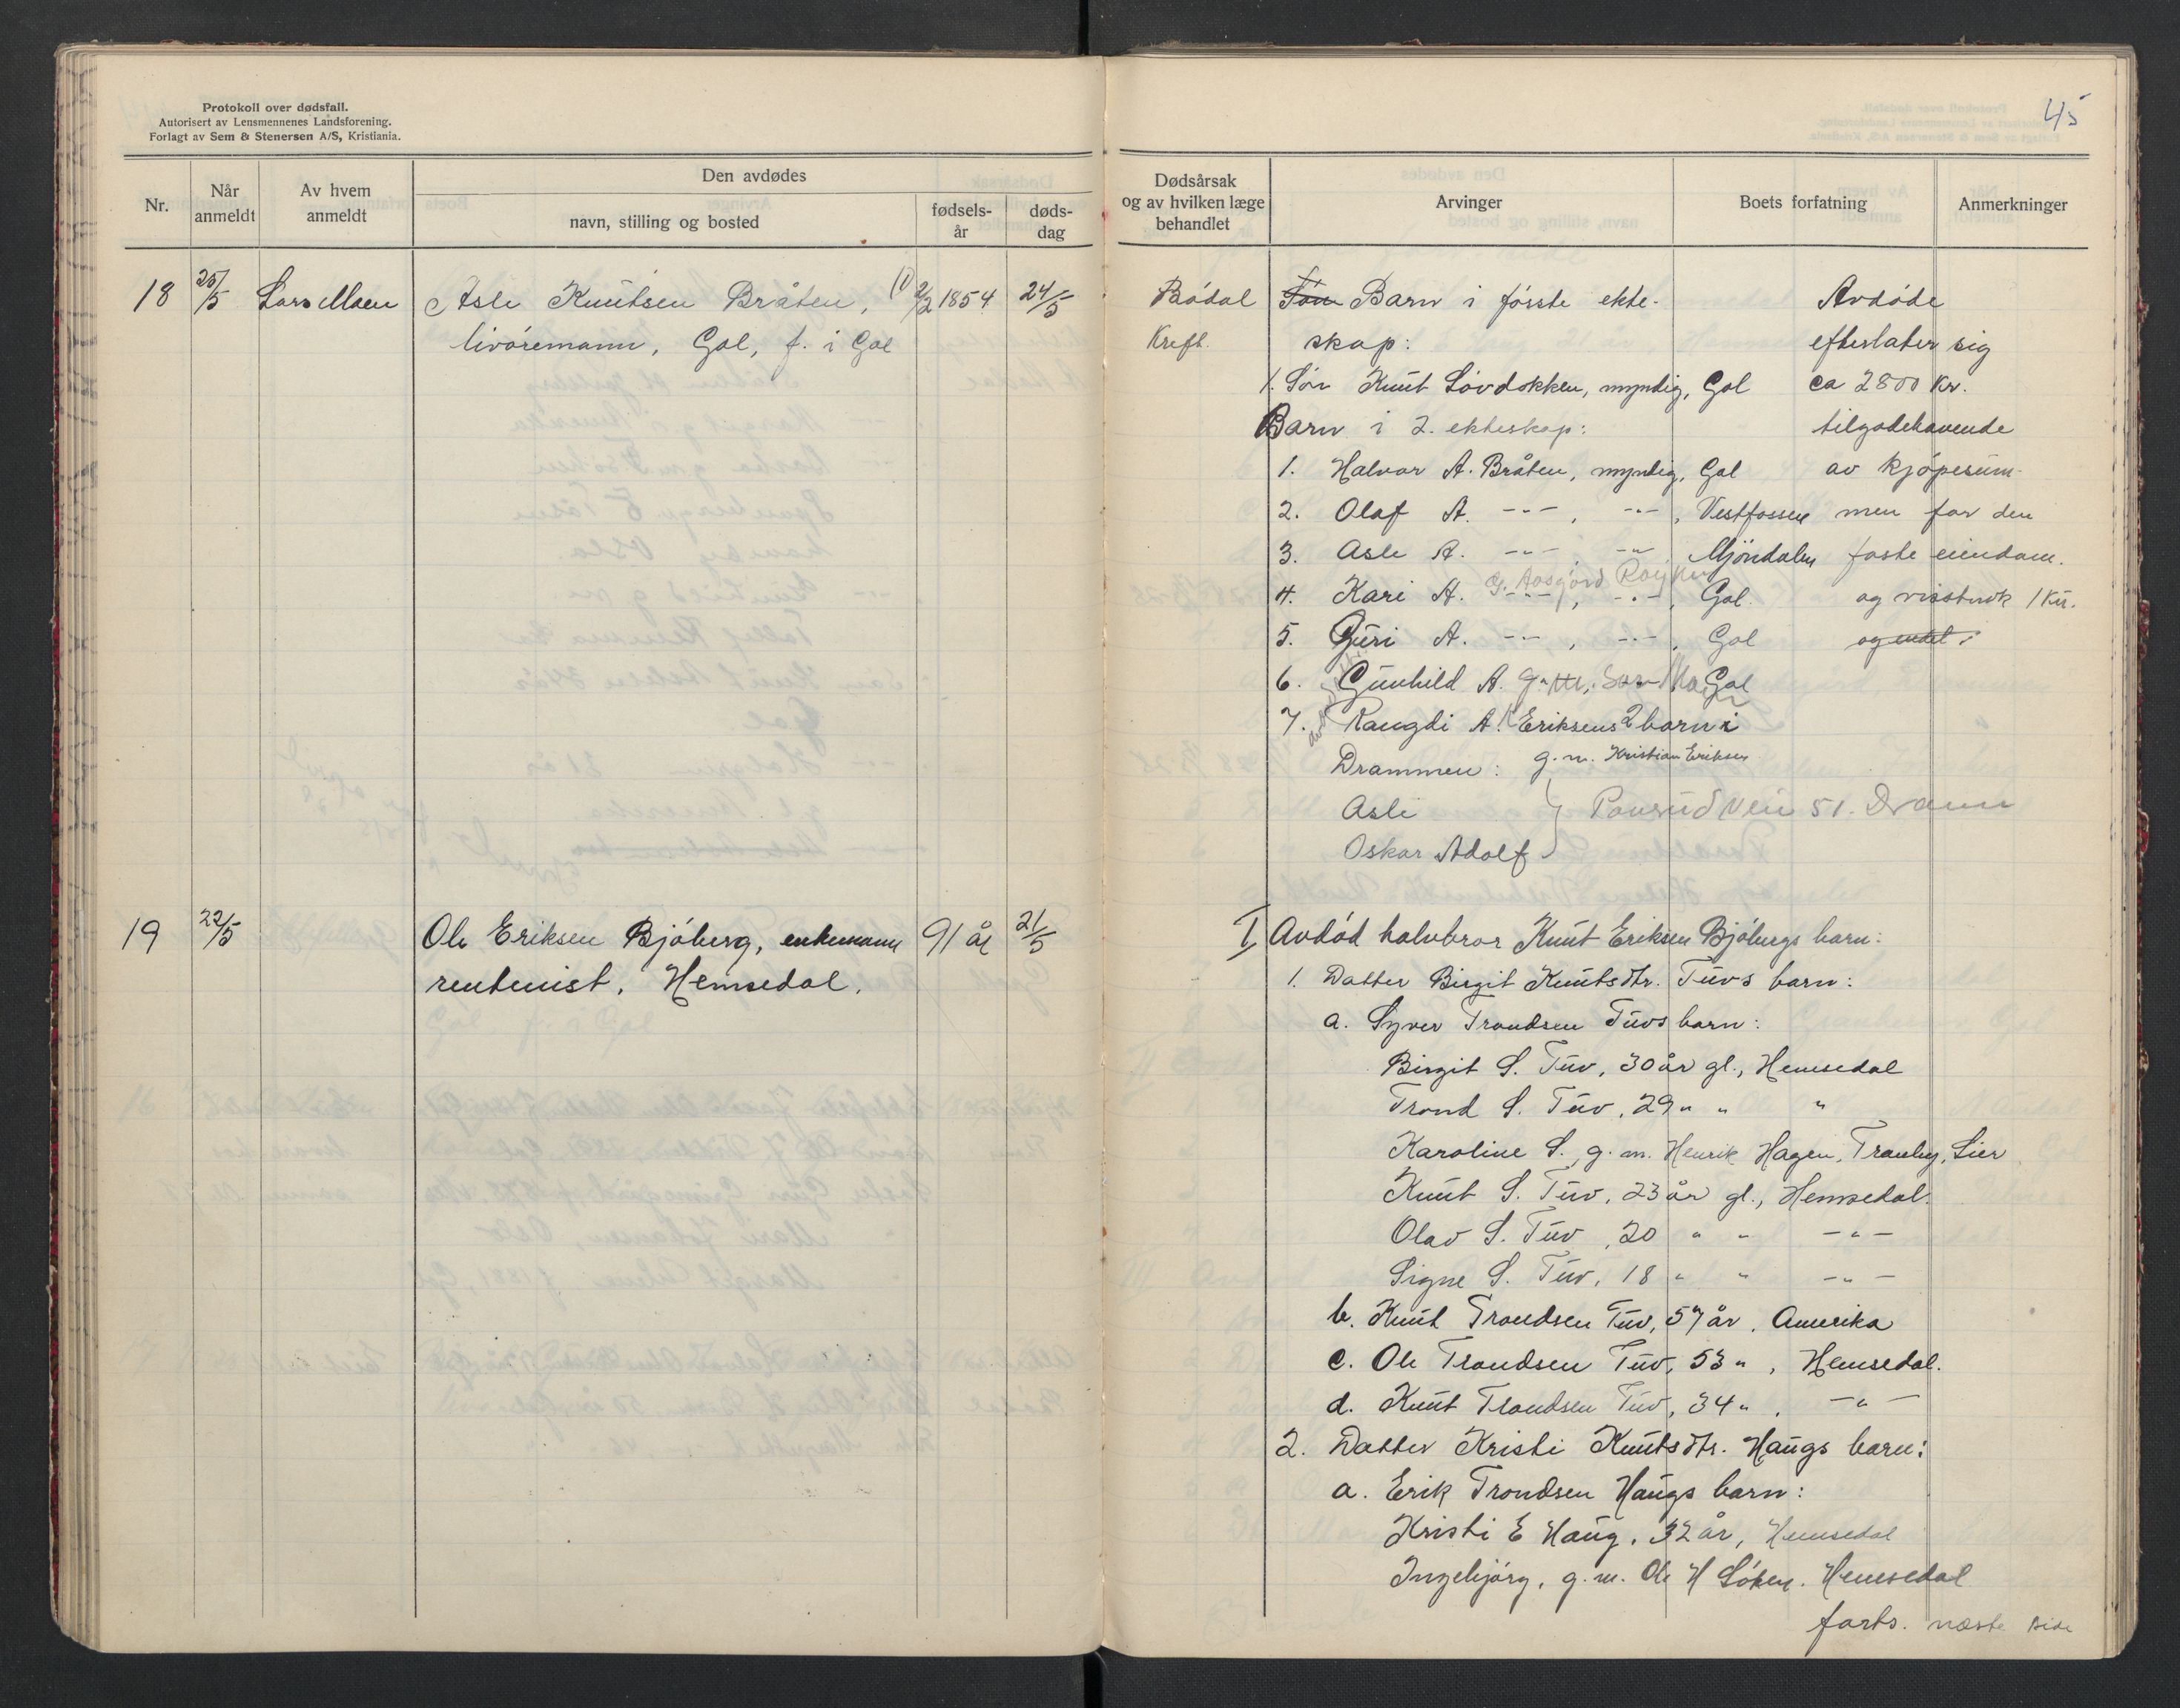 Protokoll over dødsfall.
Autorisert av Lensmennenes Landsforening.
Forlagt av Sem & Stenersen A/S, Kristiania.
45
Nr.
Når anmeldt
Av hvem anmeldt
Den avdødes
navn, stilling og bosted
fødsels-år
døds-dag
Dødsårsak og av hvilken læge behandlet
Arvinger
Boets forfatning
Anmerkninger
18 25/5 Lars Moen Asle Knutsen Bråten, 10/2 1854 24/5
livøremann, Gol, f. i Gol
Rødal
Kreft.
Søn Barn i første ekte-
skap:
1. Søn Knut Løvdokken, myndig, Gol
Barn i 2. ekteskap:
1. Halvor A. Bråten, myndig, Gol
2. Olaf A. -"-, -"-, Vestfossen
3. Asle A. -"-, -"- Mjøndalen
4. Kari A. -"-, -"-, Gol.
5. Guri A. -"-, -"-, Gol
6. Gunhild A. g.m. Gol
7. Rangdi A. Eriksens 2 barn i
Drammen: g.m. Kristian Eriksen
Asle
Oskar Adolf } 51. Dramm
Avdøde
efterlater sig
ca 2800 kr.
tilgodehavende
av kjøpesum-
men for den
faste eiendom.
og visstnok 1 ku.
og endel
19 22/5 Ole Eriksen Bjøberg, enkemann 91 år 21/5
rentenist, Hemsedal.
I Avdød halvbror Knut Eriksen Bjøbergs barn:
1. Datter Birgit Knutsdtr. Tuvs barn:
a. Syver Trondsen Tuvs barn:
Birgit S. Tuv, 30 år gl., Hemsedal
Trond S. Tuv, 29 " " "
Karoline S., g.m. Henrik Hagen, Tranby, Lier
Knut S. Tuv, 23 år gl., Hemsedal.
Olav S. Tuv, 20 " " -"-
Signe S. Tuv, 18 " " -"-
b. Knut Trondsen Tuv, 57 år, Amerika
c. Ole Trondsen Tuv, 53 ", Hemsedal.
d. Knut Trondsen Tuv, 34 ", -"-
2. Datter Kristi Knutsdtr. Haugs barn:
a. Erik Trondsen Haugs barn:
Kristi E Haug, 32 år, Hemsedal
Ingebjørg, g.m. Ole H Løken. Hemsedal
forts. næste side